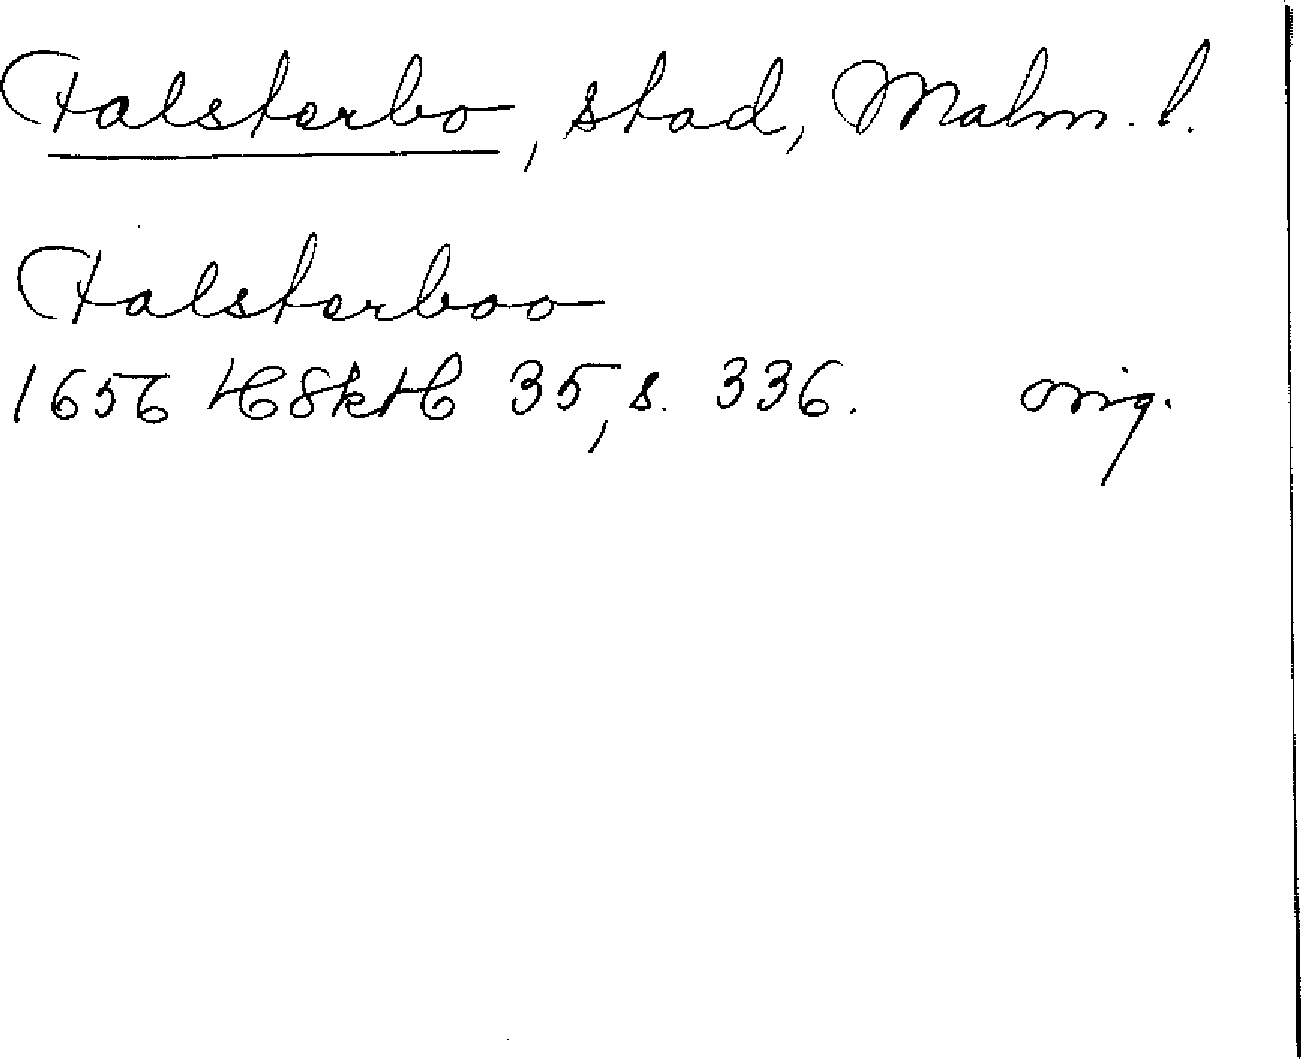 Falsterbo, stad, Malm. l.
Falsterboo
1656 HSkH 35, s. 336. orig.